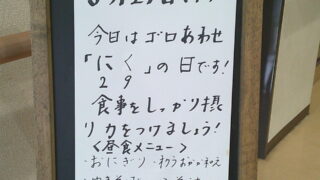 今日はゴロあわせ
「にく」の日です!
2 9
食事をしっかり摂
り力をつけましょう!
<昼食メニュー>
・おにぎり